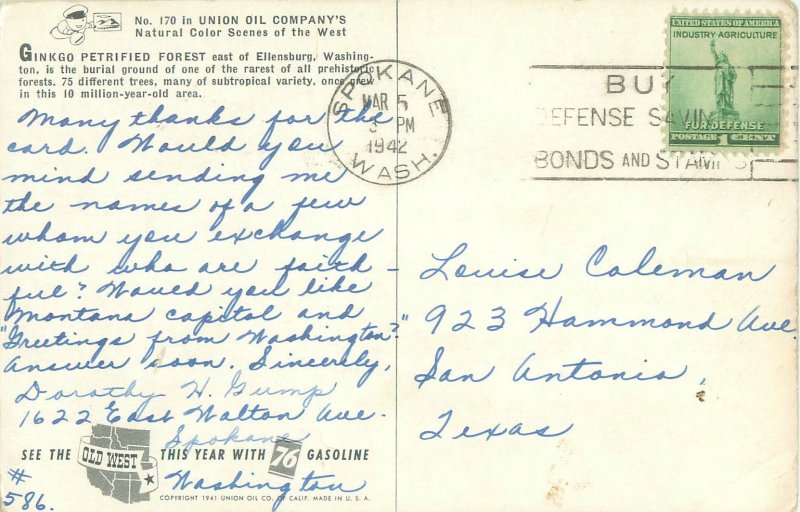 No. 170 in UNION OIL COMPANY'S
Natural Color Scenes of the West
GINKGO PETRIFIED FOREST east of Ellensburg, Washing-
ton, is the burial ground of one of the rarest of all prehistoric
forests. 75 different trees, many of subtropical variety, once grew
in this 10 million-year-old area.
Many thanks for the
card. Would you
mind sending me
the names of a few
whom you exchange
with who are faith-
ful? Would you like
Montana capital and
"Greetings from Washington?"
Answer soon. Sincerely,
Dorothy H. Gump
1622 East Walton Ave.
Spokane
Washington
#
586.
SEE THE OLD WEST THIS YEAR WITH 76 GASOLINE
COPYRIGHT 1941 UNION OIL CO. OF CALIF. MADE IN U. S. A.
SPOKANE
MAR 5
3 PM
1942
WASH.
BUY
DEFENSE SAVINGS
BONDS AND STAMPS
UNITED STATES OF AMERICA
INDUSTRY-AGRICULTURE
FOR DEFENSE
POSTAGE 1 CENT
Louise Coleman
923 Hammond Ave.
San Antonio,
Texas